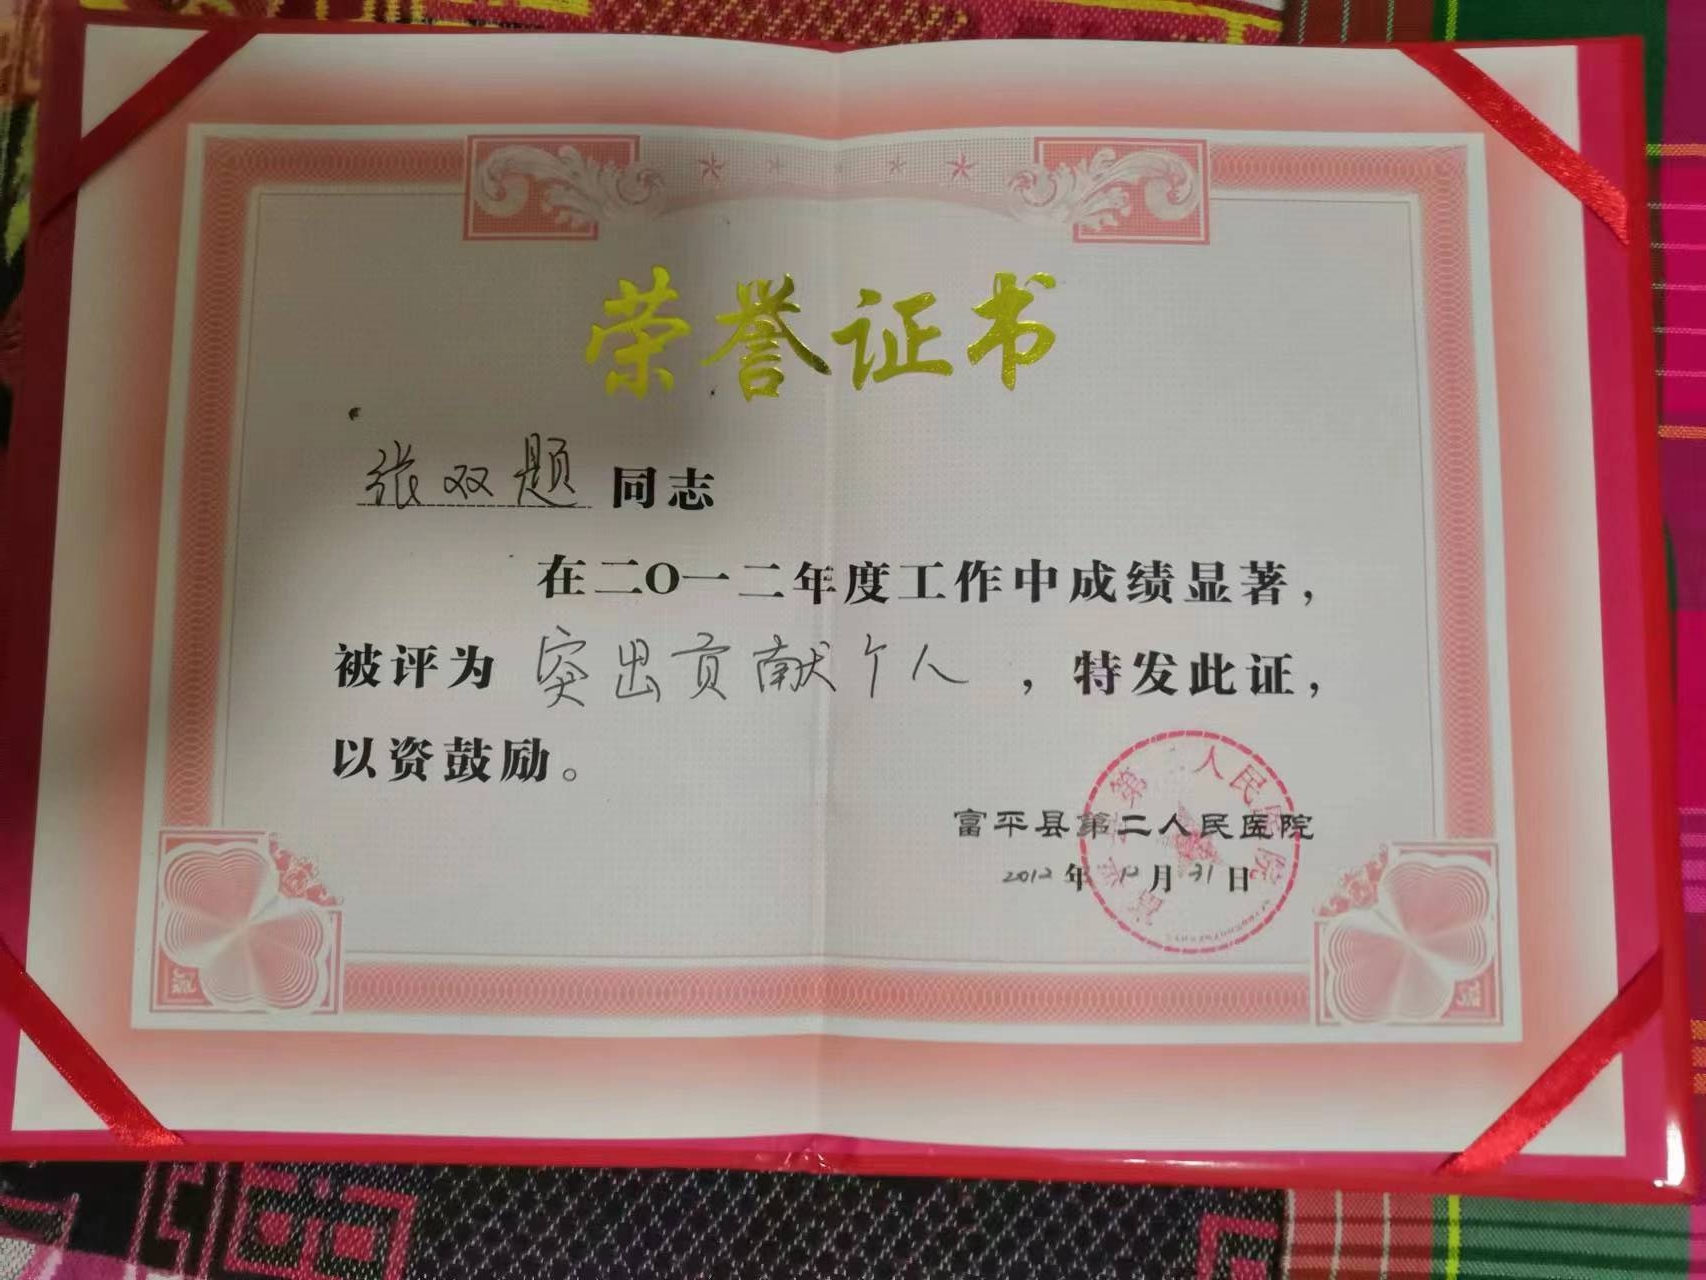 荣誉证书
张双题 同志
在二〇一二年度工作中成绩显著，
被评为 突出贡献个人 ，特发此证，
以资鼓励。
富平县第二人民医院
2012年12月31日